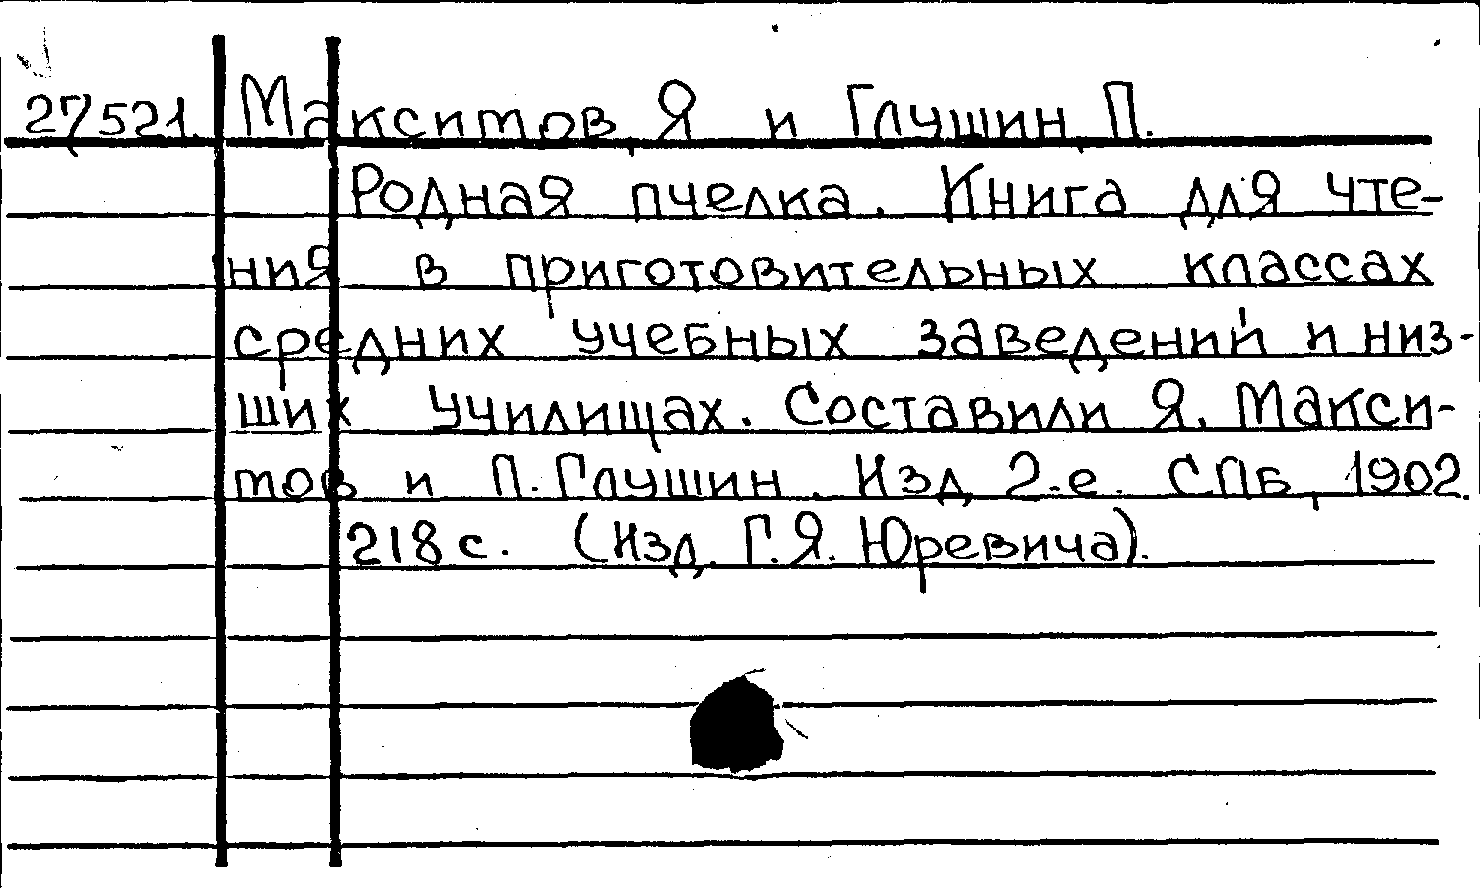 27521. Максимов, Я и Глушин, П.
Родная пчелка. Книга для чте-
ния в приготовительных классах
средних учебных заведений и низ-
ших училищах. Составили Я. Макси-
мов и П. Глушин. Изд. 2-е. СПБ, 1902.
218 с. (Изд. Г.Я. Юревича).